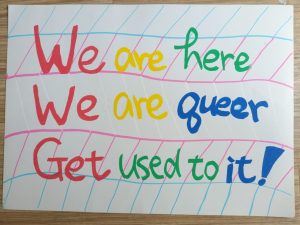 We are here
We are queer
Get used to it!